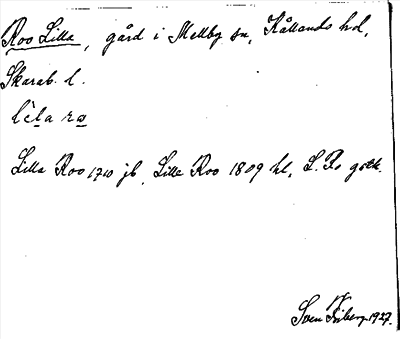 Roo Lilla, gård i Mellby sn, Kållands hd,
Skarab. l.
lìla rω
Lilla Roo 1710 jb, Lille Roo 1809 hl, L. Ro gstk.
Sven Friberg 1927.